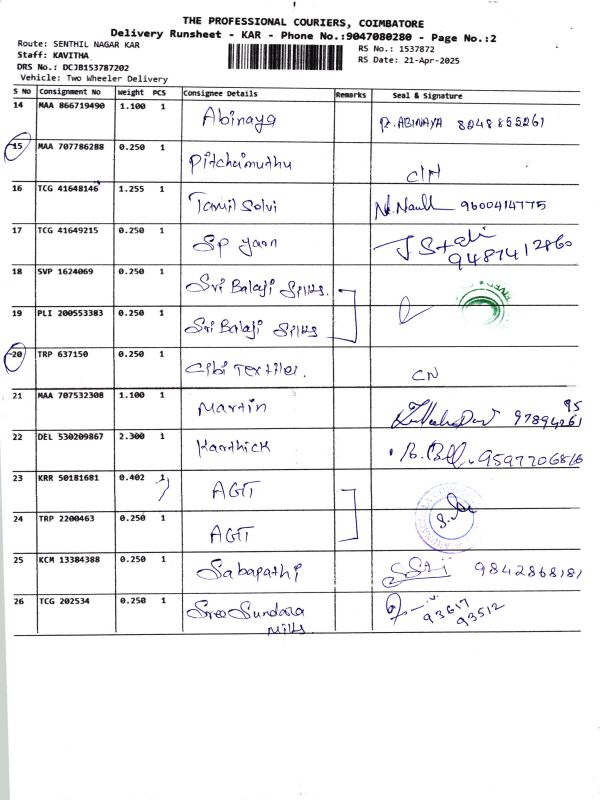 THE PROFESSIONAL COURIERS, COIMBATORE
Delivery Runsheet - KAR - Phone No.:9047080280 - Page No.:2
Route: SENTHIL NAGAR KAR
Staff: KAVITHA
DRS No.: DCJB153787202
Vehicle: Two Wheeler Delivery
RS No.: 1537872
RS Date: 21-Apr-2025
S No Consignment No Weight PCS Consignee Details Remarks Seal & Signature
14 MAA 866719490 1.100 1 Abinaya P. ABINAYA 8248855261
15 MAA 707786288 0.250 1 Pitchaimuthu C/N
16 TCG 41648146 1.255 1 Tamil Selvi 9600414775
17 TCG 41649215 0.250 1 Sp yarn 9487412860
18 SVP 1624069 0.250 1 Sri Balaji Silks.
19 PLI 200553383 0.250 1 Sri Balaji Silks
20 TRP 637150 0.250 1 Cibi Textiles. CN
21 MAA 707532308 1.100 1 Martin 95 97894261
22 DEL 530209867 2.300 1 Karthick 9597706816
23 KRR 50181681 0.402 1 AGT
24 TRP 2200463 0.250 1 AGT
25 KCM 13384388 0.250 1 Sabapathi 9842868181
26 TCG 202534 0.250 1 Sree Sundara
Mills. 93617
93512